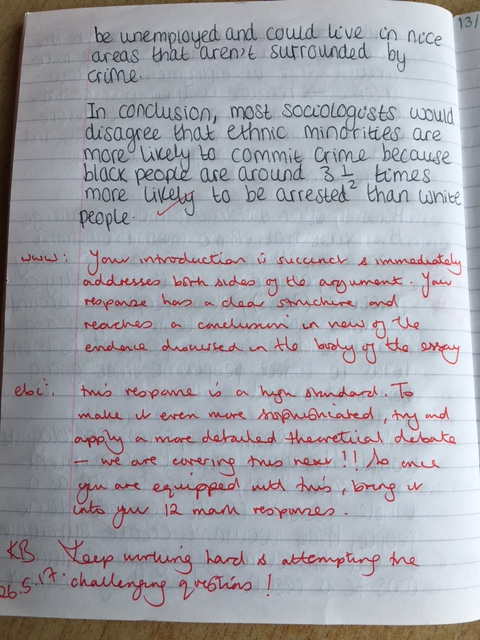 13/
be unemployed and could live in nice
areas that aren't surrounded by
crime.
In conclusion, most sociologists would
disagree that ethnic minorities are
more likely to commit crime because
black people are around 3 1/2 times
more likely to be arrested than white
people.
www: Your introduction is succinct & immediately
addresses both sides of the argument. Your
response has a clear structure and
reaches a conclusion in view of the
evidence discussed in the body of the essay
ebi: This response is a high standard. To
make it even more sophisticated, try and
apply a more detailed theoretical debate
- we are covering this next!! So once
you are equipped with this, bring it
into your 12 mark responses.
KB Keep working hard & attempting the
26.5.17. challenging questions!